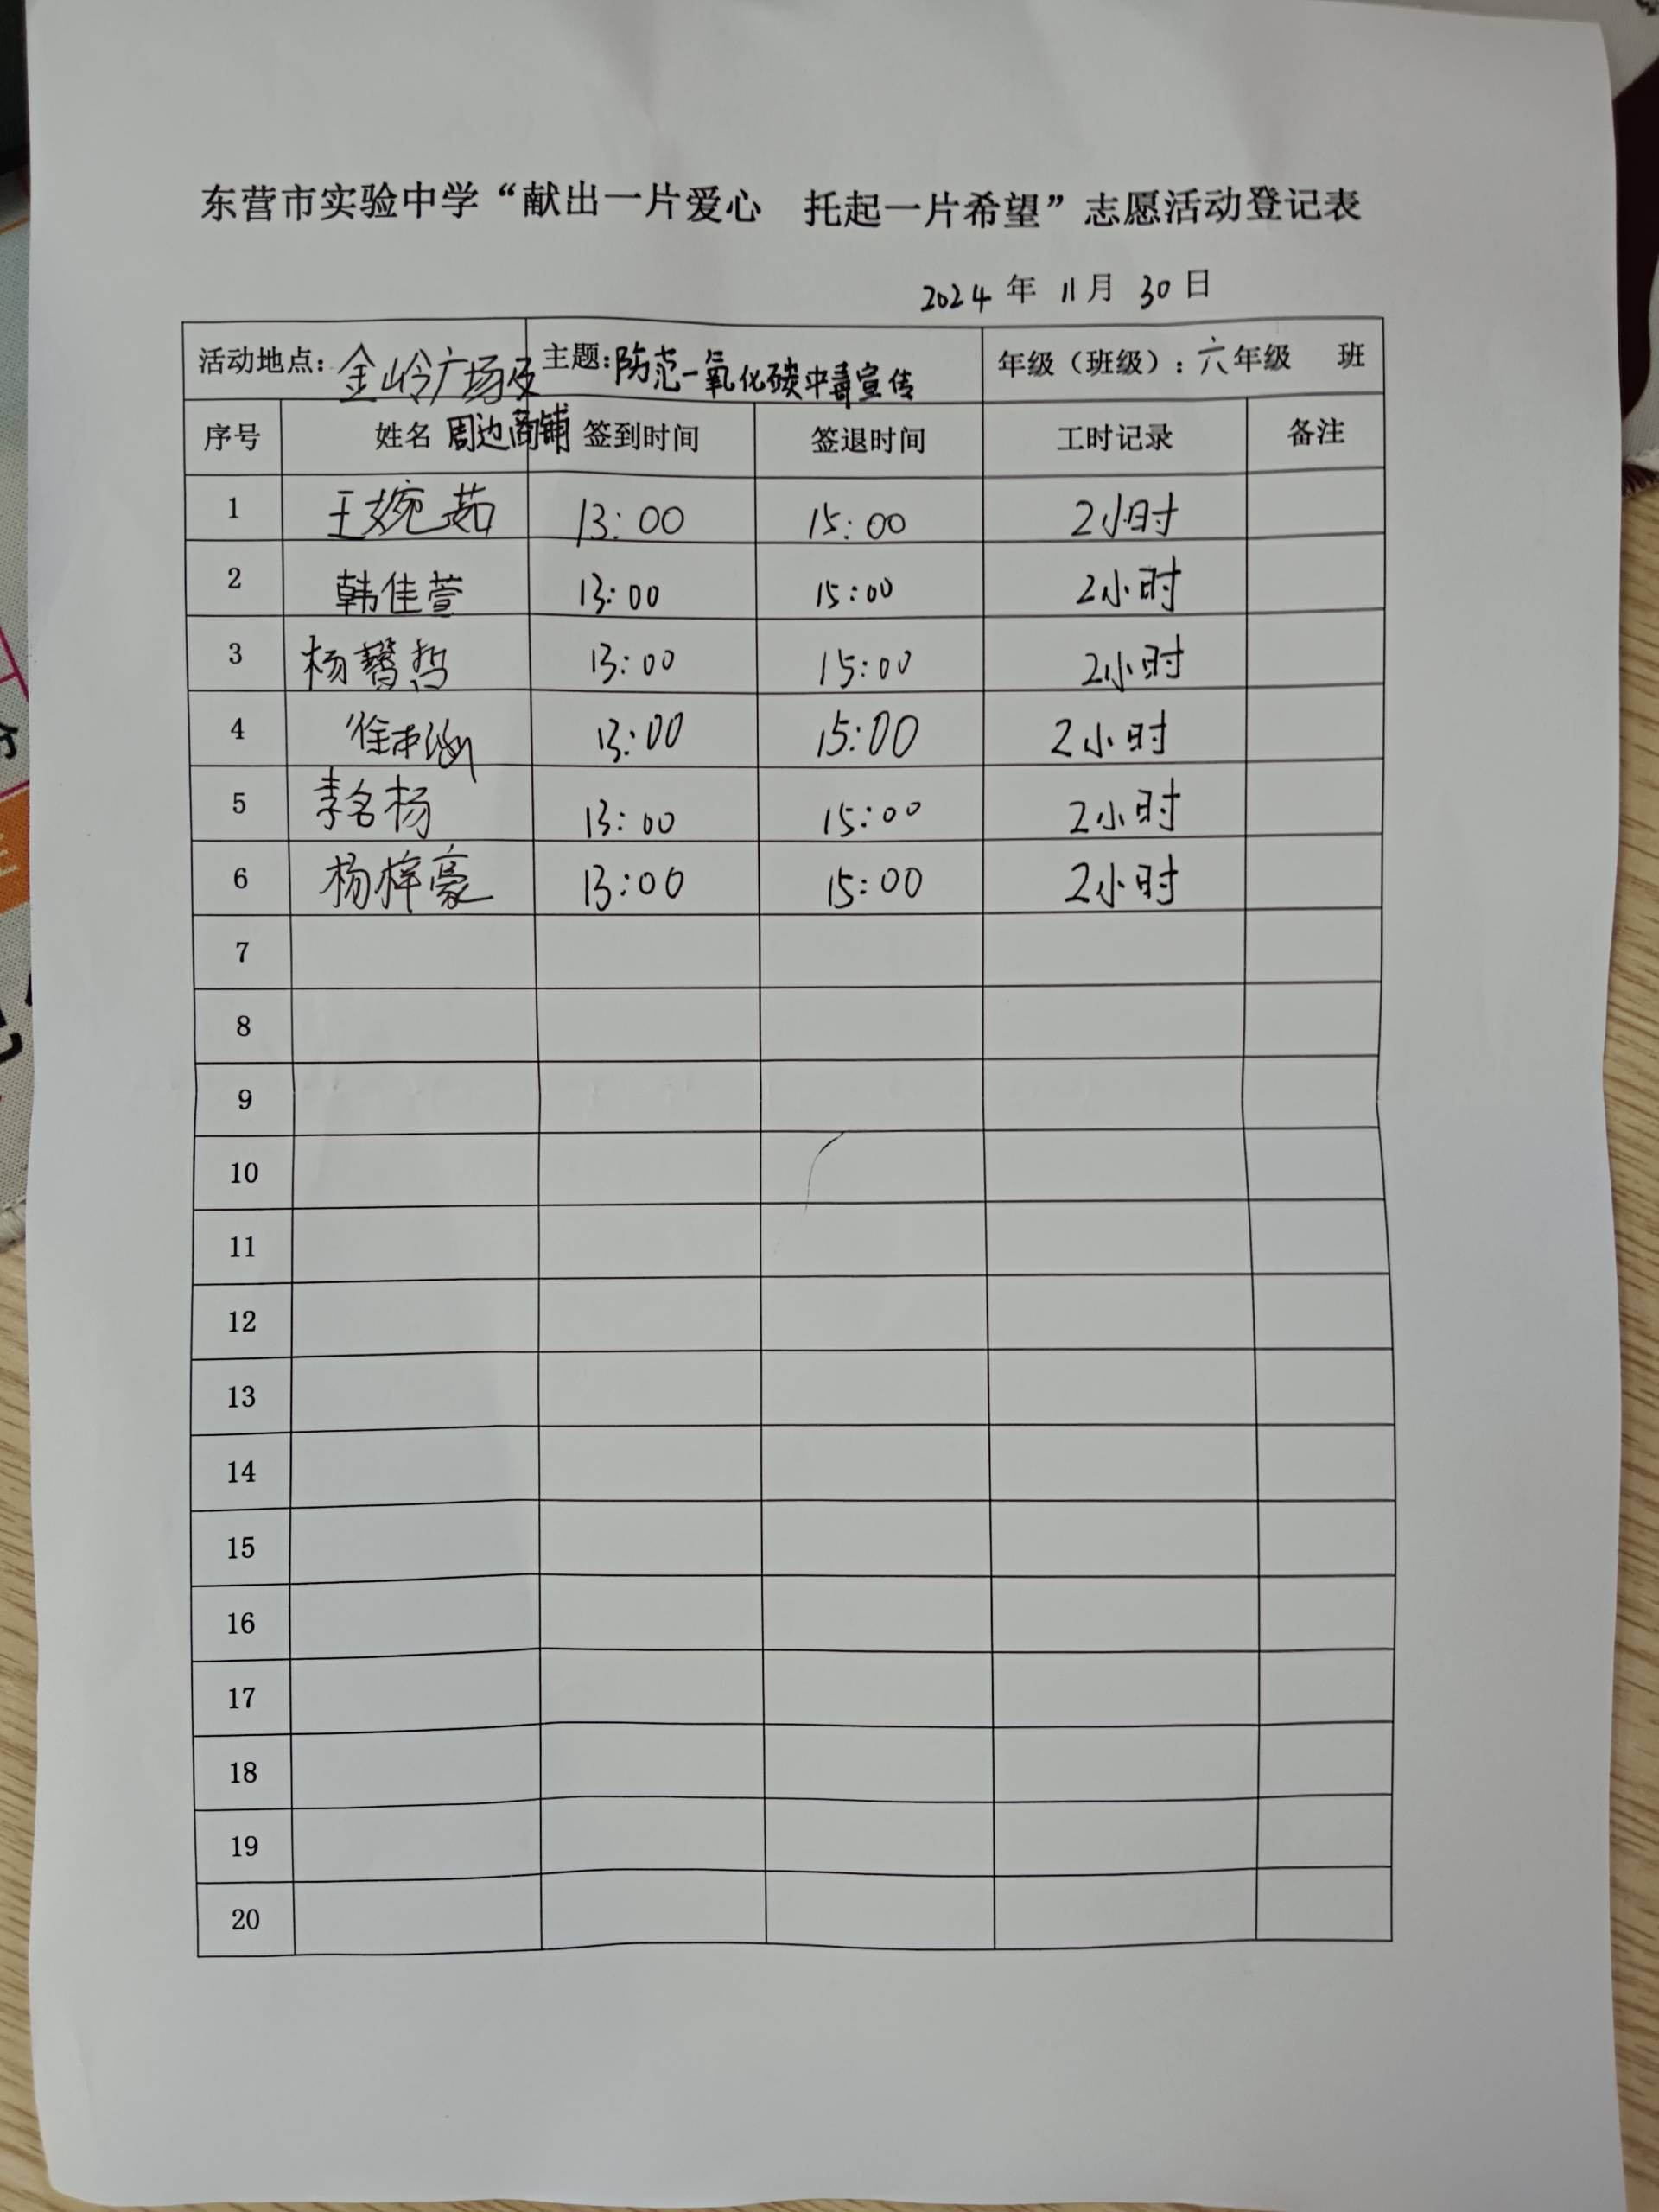 东营市实验中学“献出一片爱心 托起一片希望”志愿活动登记表
2024 年 11 月 30 日
活动地点：金岭广场及周边商铺 主题：防范一氧化碳中毒宣传 年级（班级）：六年级 班
序号 姓名 签到时间 签退时间 工时记录 备注
1 王婉茹 13:00 15:00 2小时
2 韩佳萱 13:00 15:00 2小时
3 杨馨哲 13:00 15:00 2小时
4 13:00 15:00 2小时
5 李名杨 13:00 15:00 2小时
6 杨梓豪 13:00 15:00 2小时
7
8
9
10
11
12
13
14
15
16
17
18
19
20